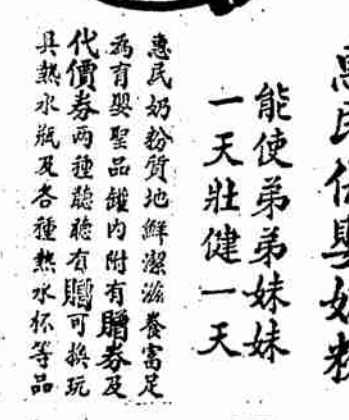 惠民保嬰奶粉
能使弟弟妹妹
一天壯健一天
惠民奶粉質地鮮潔滋養富足
為育嬰聖品罐內附有贈券及
代價券兩種聽聽有贈可換玩
具熱水瓶及各種熱水杯等品